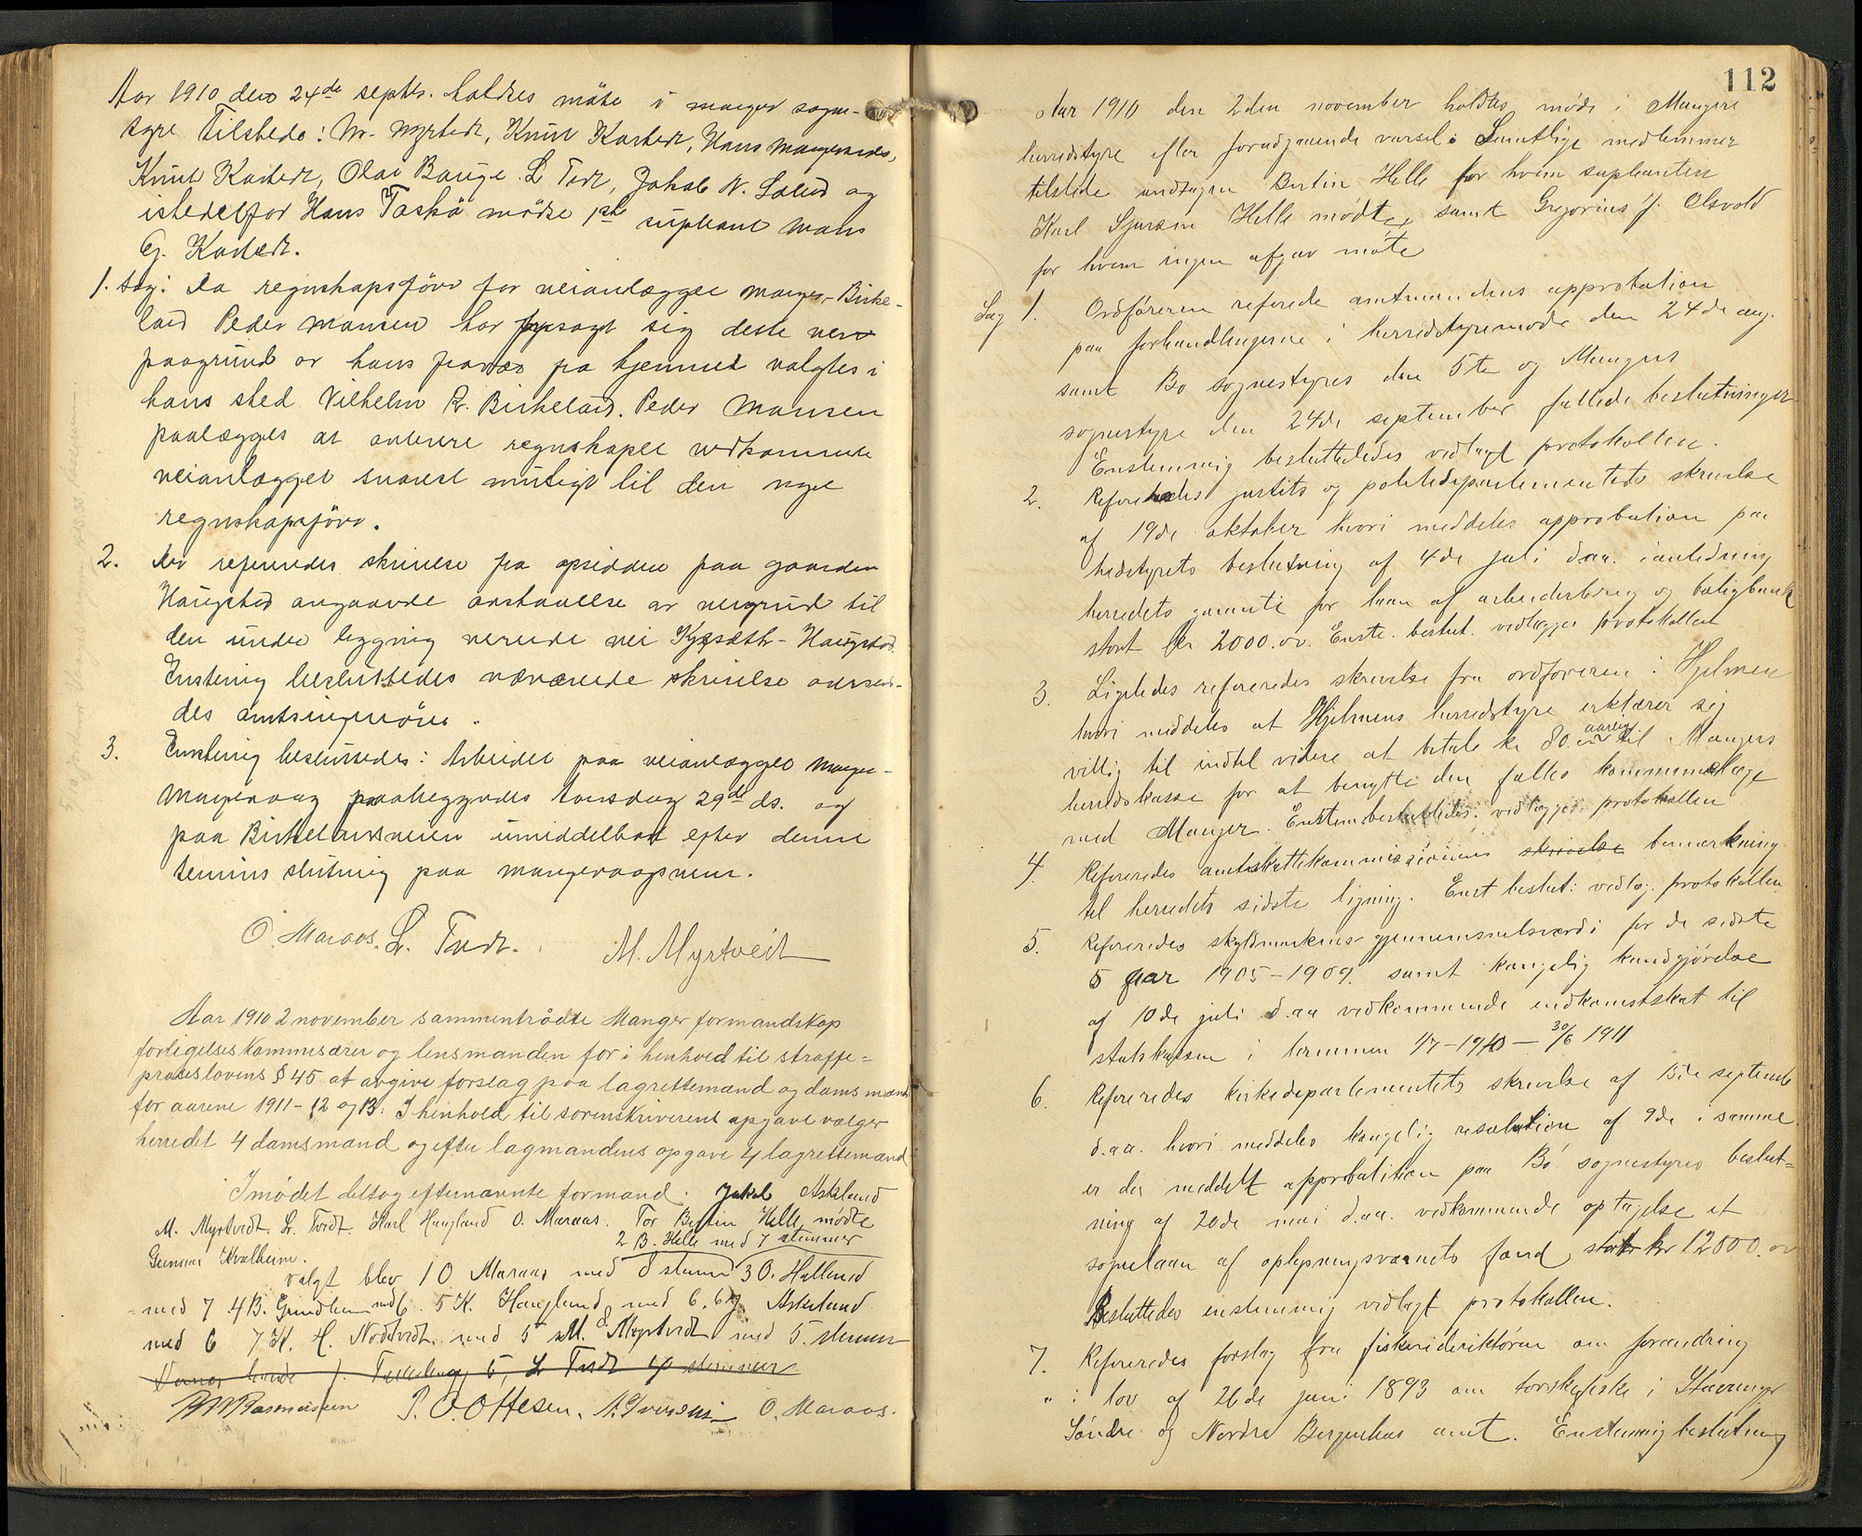 Aar 1910 den 24de septbr. holdtes møte i manger sogne-
styre Tilstede: M. Myrtvedt, Knut Kartvedt, Hans Mangersnes,
Knut Kartvedt, Olai Bauge. L. Tvedt, Jakob N. Solend og
istedetfor Hans Toskø mødte 1ste supleant Mons
G. Kartvedt.
1. Sag: Da regnskapsfører for veianlægget Manger-Birke-
land Peder Monsen har frasagt sig dette verv
paagrund av hans fravær fra hjemmet valgtes i
hans sted Vilhelm R. Birkeland. Peder Monsen
paalægges at avlevere regnskapet vedkommende
veianlægget snarest muligt til den nye
regnskapsfører.
2. Der refereredes skrivelse fra opsidderne paa gaarden
Haugstad angaaende avstaaelse av veigrund til
den under bygning værende vei Kyrsæth-Haugstad.
Enstemig besluttedes nærværende skrivelse oversen-
des amtsingeniøren.
3. Enstemig besluttedes: Arbeidet paa veianlægget Manger-
Mangervaag paabegyndes torsdag 29de ds. og
paa Birkelandsveien umiddelbart efter denne
termins slutning paa mangervaagveien.
O. Maraas. L. Tvedt. M. Myrtvedt
Aar 1910 2 november sammentrådte Manger formandskap
forligelseskommisærer og lensmanden for i henhold til straffe=
proseslovens § 45 at avgive forslag paa lagrettemænd og domsmænd
for aarene 1911-12 og 13. I henhold til sorenskriverens opgave vælger
herredet 4 domsmænd og efter lagmandens opgave 4 lagrettemænd
I mødet deltog efternævnte formænd: Jakob Askeland
M. Myrtvedt. L. Tvedt. Karl Haugland O. Maraas. For Bertin Helle mødte
Gunnar Kvalheim. 2 B. Helle med 7 stemmer
valgt blev 1 O. Maraas med 8 stemmer 3 O. Halland
med 7 4 B. Grindheim med 6. 5 K. Haugland med 6. 6 J. Askeland
med 6 7 K. H. Nodtvedt. med 5 8 M. Myrtvedt med 5. stemmer
5, L Tvedt 4 stemmer
Rasmussen P. O. Ottesen. A. Iversen O. Maraas.
112
Aar 1910 den 2den november holdtes møde i Mangers
herredstyre efter forudgaaende varsel. Samtlige medlemmer
tilstede undtagen Bertin Helle for hvem supleanten
Karl Sjursen Helle mødte, samt Gregorius J. Olsvold
for hvem ingen afgav møte
Sag 1. Ordføreren referede amtmandens approbation
paa forhandlingerne i herredstyremøde den 24de aug.
samt Bø sognestyres den 5te og Mangers
sognestyre den 24de september fattede beslutninger
Enstemmig besluttededes vedlagt protokollen.
2. Refereredes justits og politidepartementets skrivelse
af 19de oktober hvori meddeles approbation paa
hedstyrets beslutning af 4de juli d.aa. i anledning
herredets garanti for laan af arbeiderbrug og boligbank
stort kr 2000.00. Enste. beslut. vedlægges protokollen
3. Ligeledes refereredes skrivelse fra ordføreren i Hjelmen
hvori meddeles at Hjelmens herredstyre erklærer sig
villig til indtil videre at betale kr 80.00 aarlig til Mangers
herredskasse for at benytte den fælles kommunelæge
med Manger. Enstem besluttedes: vedlægges protokollen
4. Refereredes amtskattekommissionens skrivelse bemærkning
til herredets sidste ligning. Enst beslut: vedlæg. protokollen
5. Refereredes skyldmarkens gjennemsnitsværdi for de sidste
5 aar 1905-1909. samt kongelig kundgjørelse
af 10de juli d.aa vedkommende indkomstskat til
statskassen i terminen 1/7-1910 - 30/6 1911
6. Refereredes kirkedepartementets skrivelse af 15de september
d.aa. hvori meddeles kongelig resolution af 9de i samme
er der meddelt approbation paa Bø sognestyres beslut=
ning af 20de mai d.aa. vedkommende optagelse et
sognelaan af oplysningsvæsenets fond, stort kr 12000.00
Besluttedes enstemmig vedlagt protokollen.
7. Refereredes forslag fra fiskeridirektøren om forandring
i lov af 26de juni 1893 om torskefiske i Stavanger
Søndre og Nordre Bergenhus amt. Enstemmig beslutning